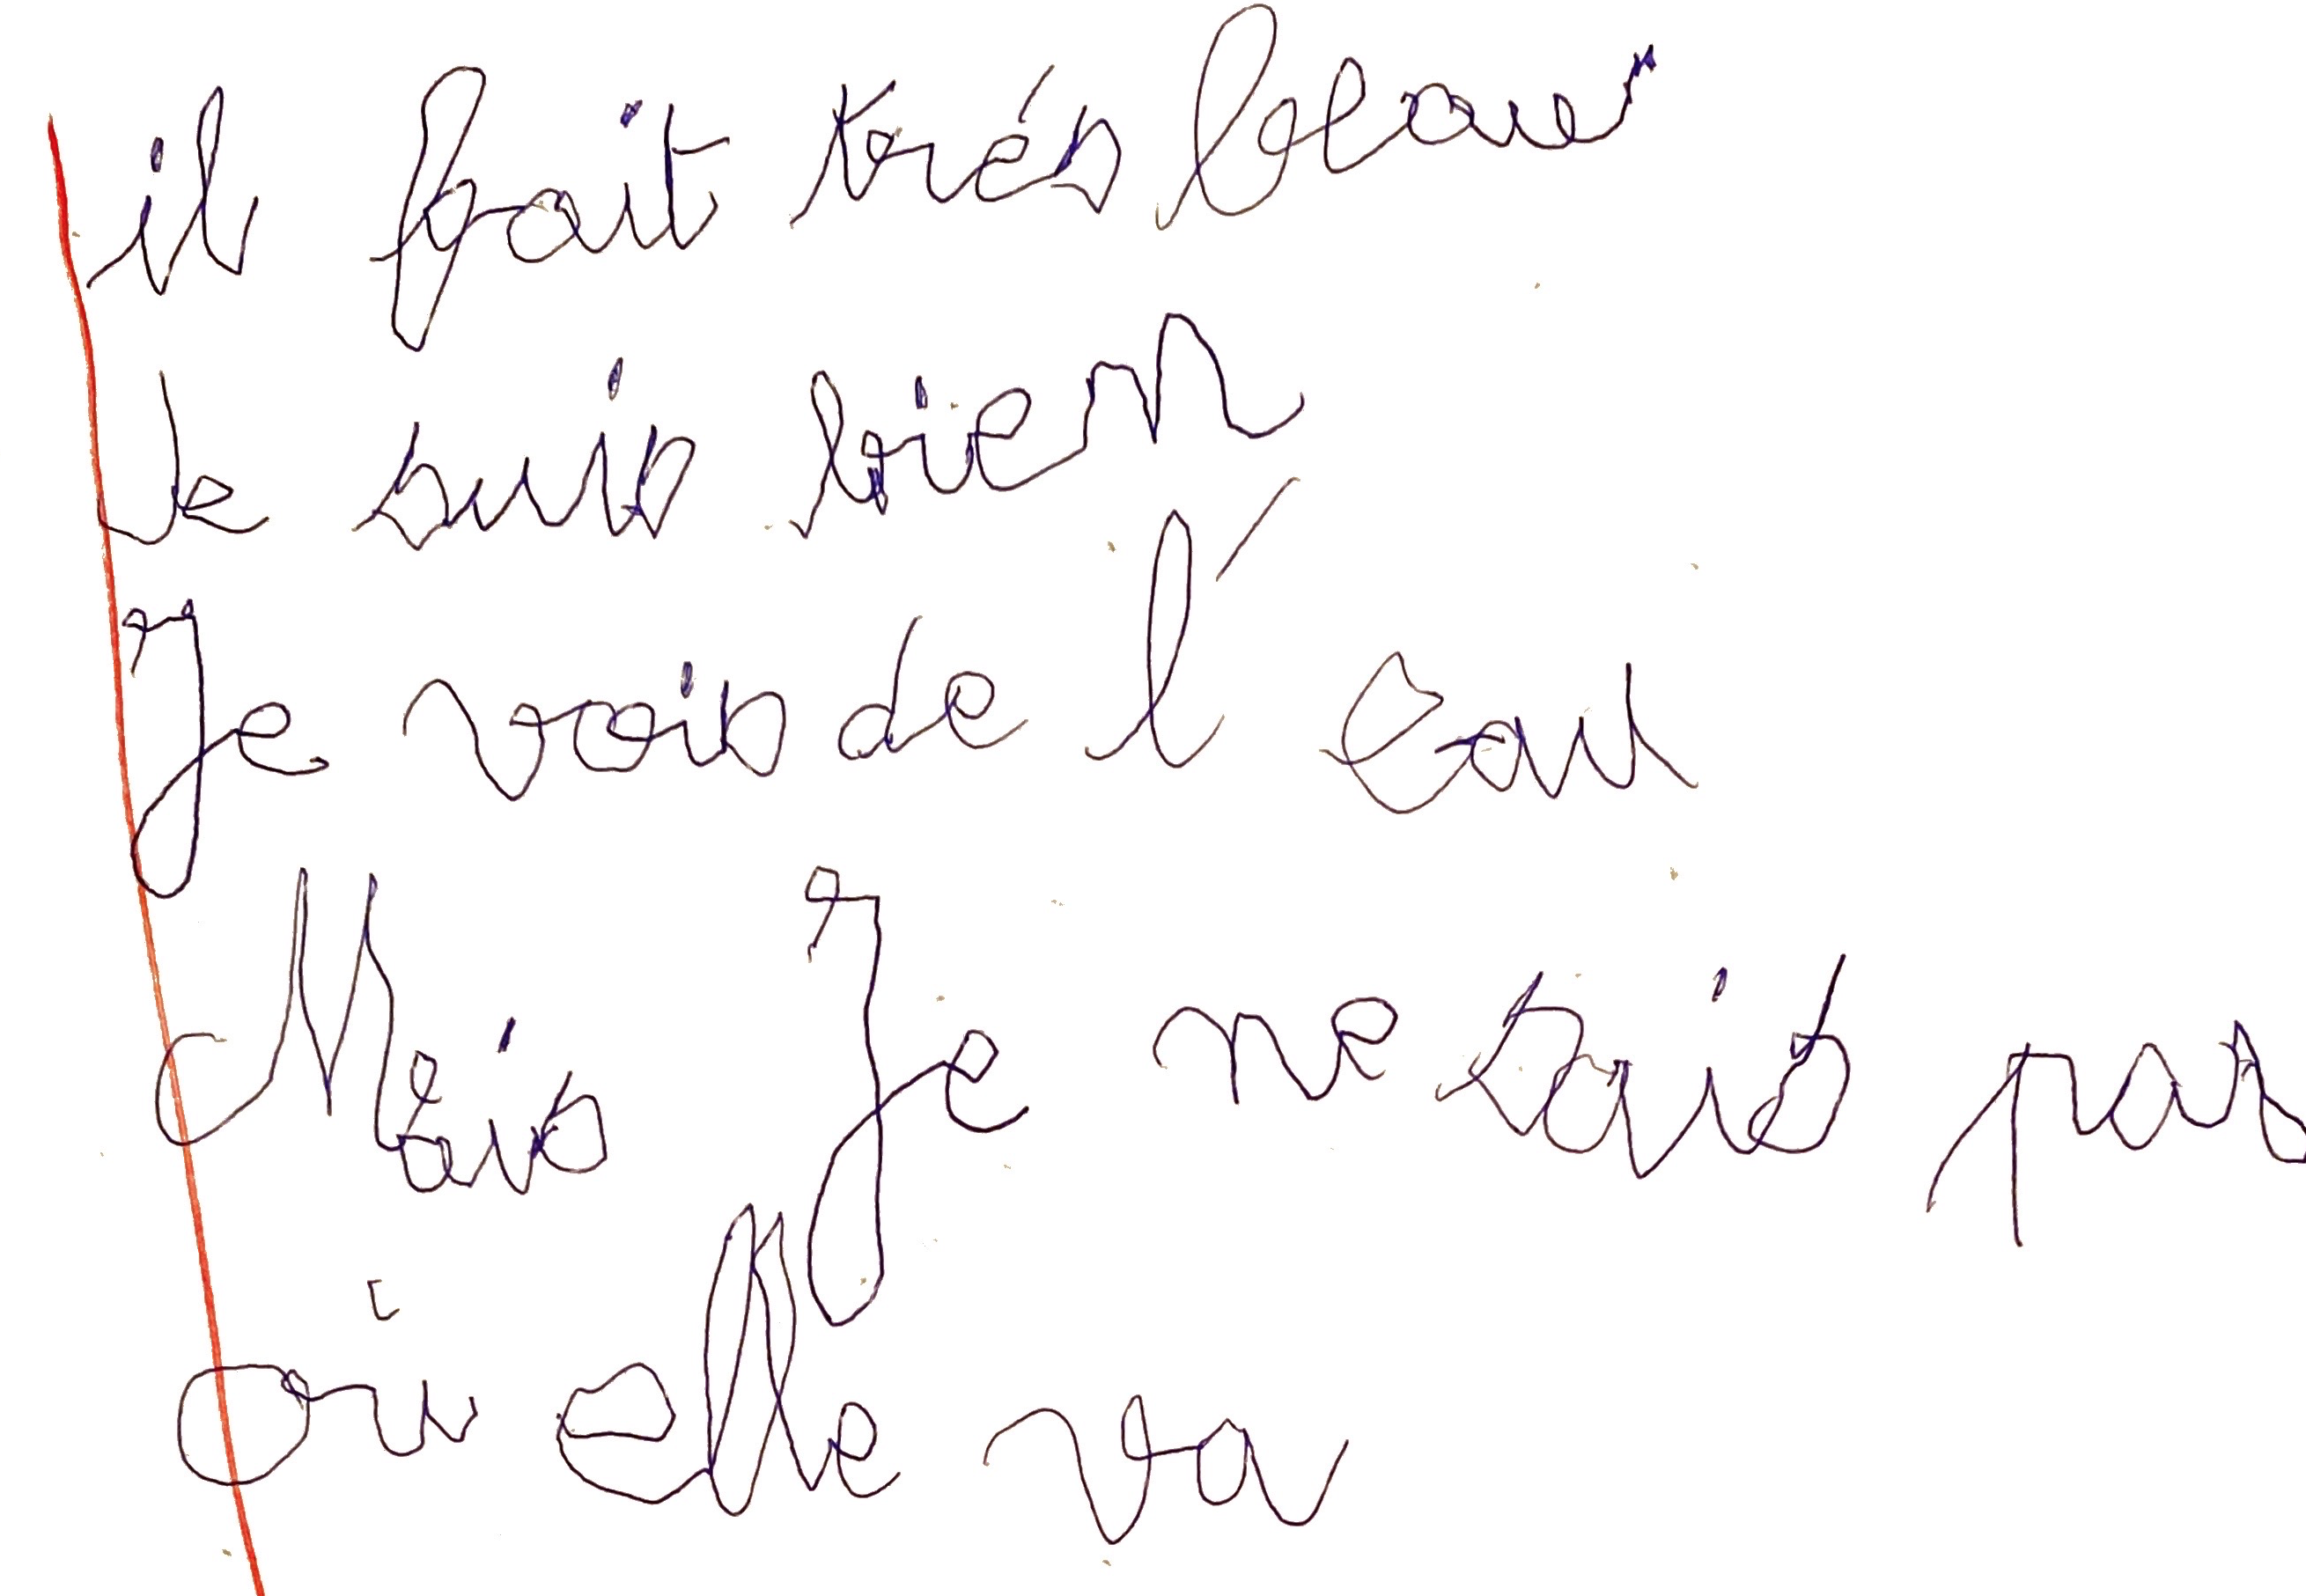 il fait trés beau
Je suis bien
Je vois de l'eau
Mais Je ne sais pas
où elle va